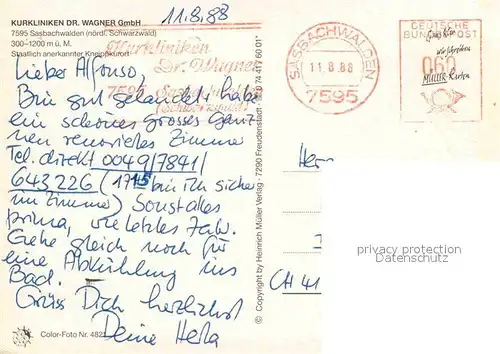 KURKLINIKEN DR. WAGNER GmbH
7595 Sasbachwalden (nördl. Schwarzwald)
300–1200 m ü. M.
Staatlich anerkannter Kneippkurort
11.8.88
Kurkliniken
Dr. Wagner
7595 Sasbachwalden
(Schwarzwald)
SASBACHWALDEN
11.8.88
7595
DEUTSCHE
BUNDESPOST
060
wir schreiben
MÜLLER-Karten
Lieber Alfonso,
Bin gut gelandet, habe
ein schönes Grosses Ganz
neu renoviertes Zimmer
Tel. direkt 0049/7841/
643 226 ( bin ich sicher
im Zimmer) Sonst alles
prima, wie letztes Jahr.
Gehe gleich noch für
eine Abkühlung ins
Bad.
Grüss Dich herzlichst
Deine Herta
Color-Foto Nr.
© Copyright by Heinrich Müller Verlag - 7290 Freudenstadt
Herr
CH 41
privacy protection
Datenschutz